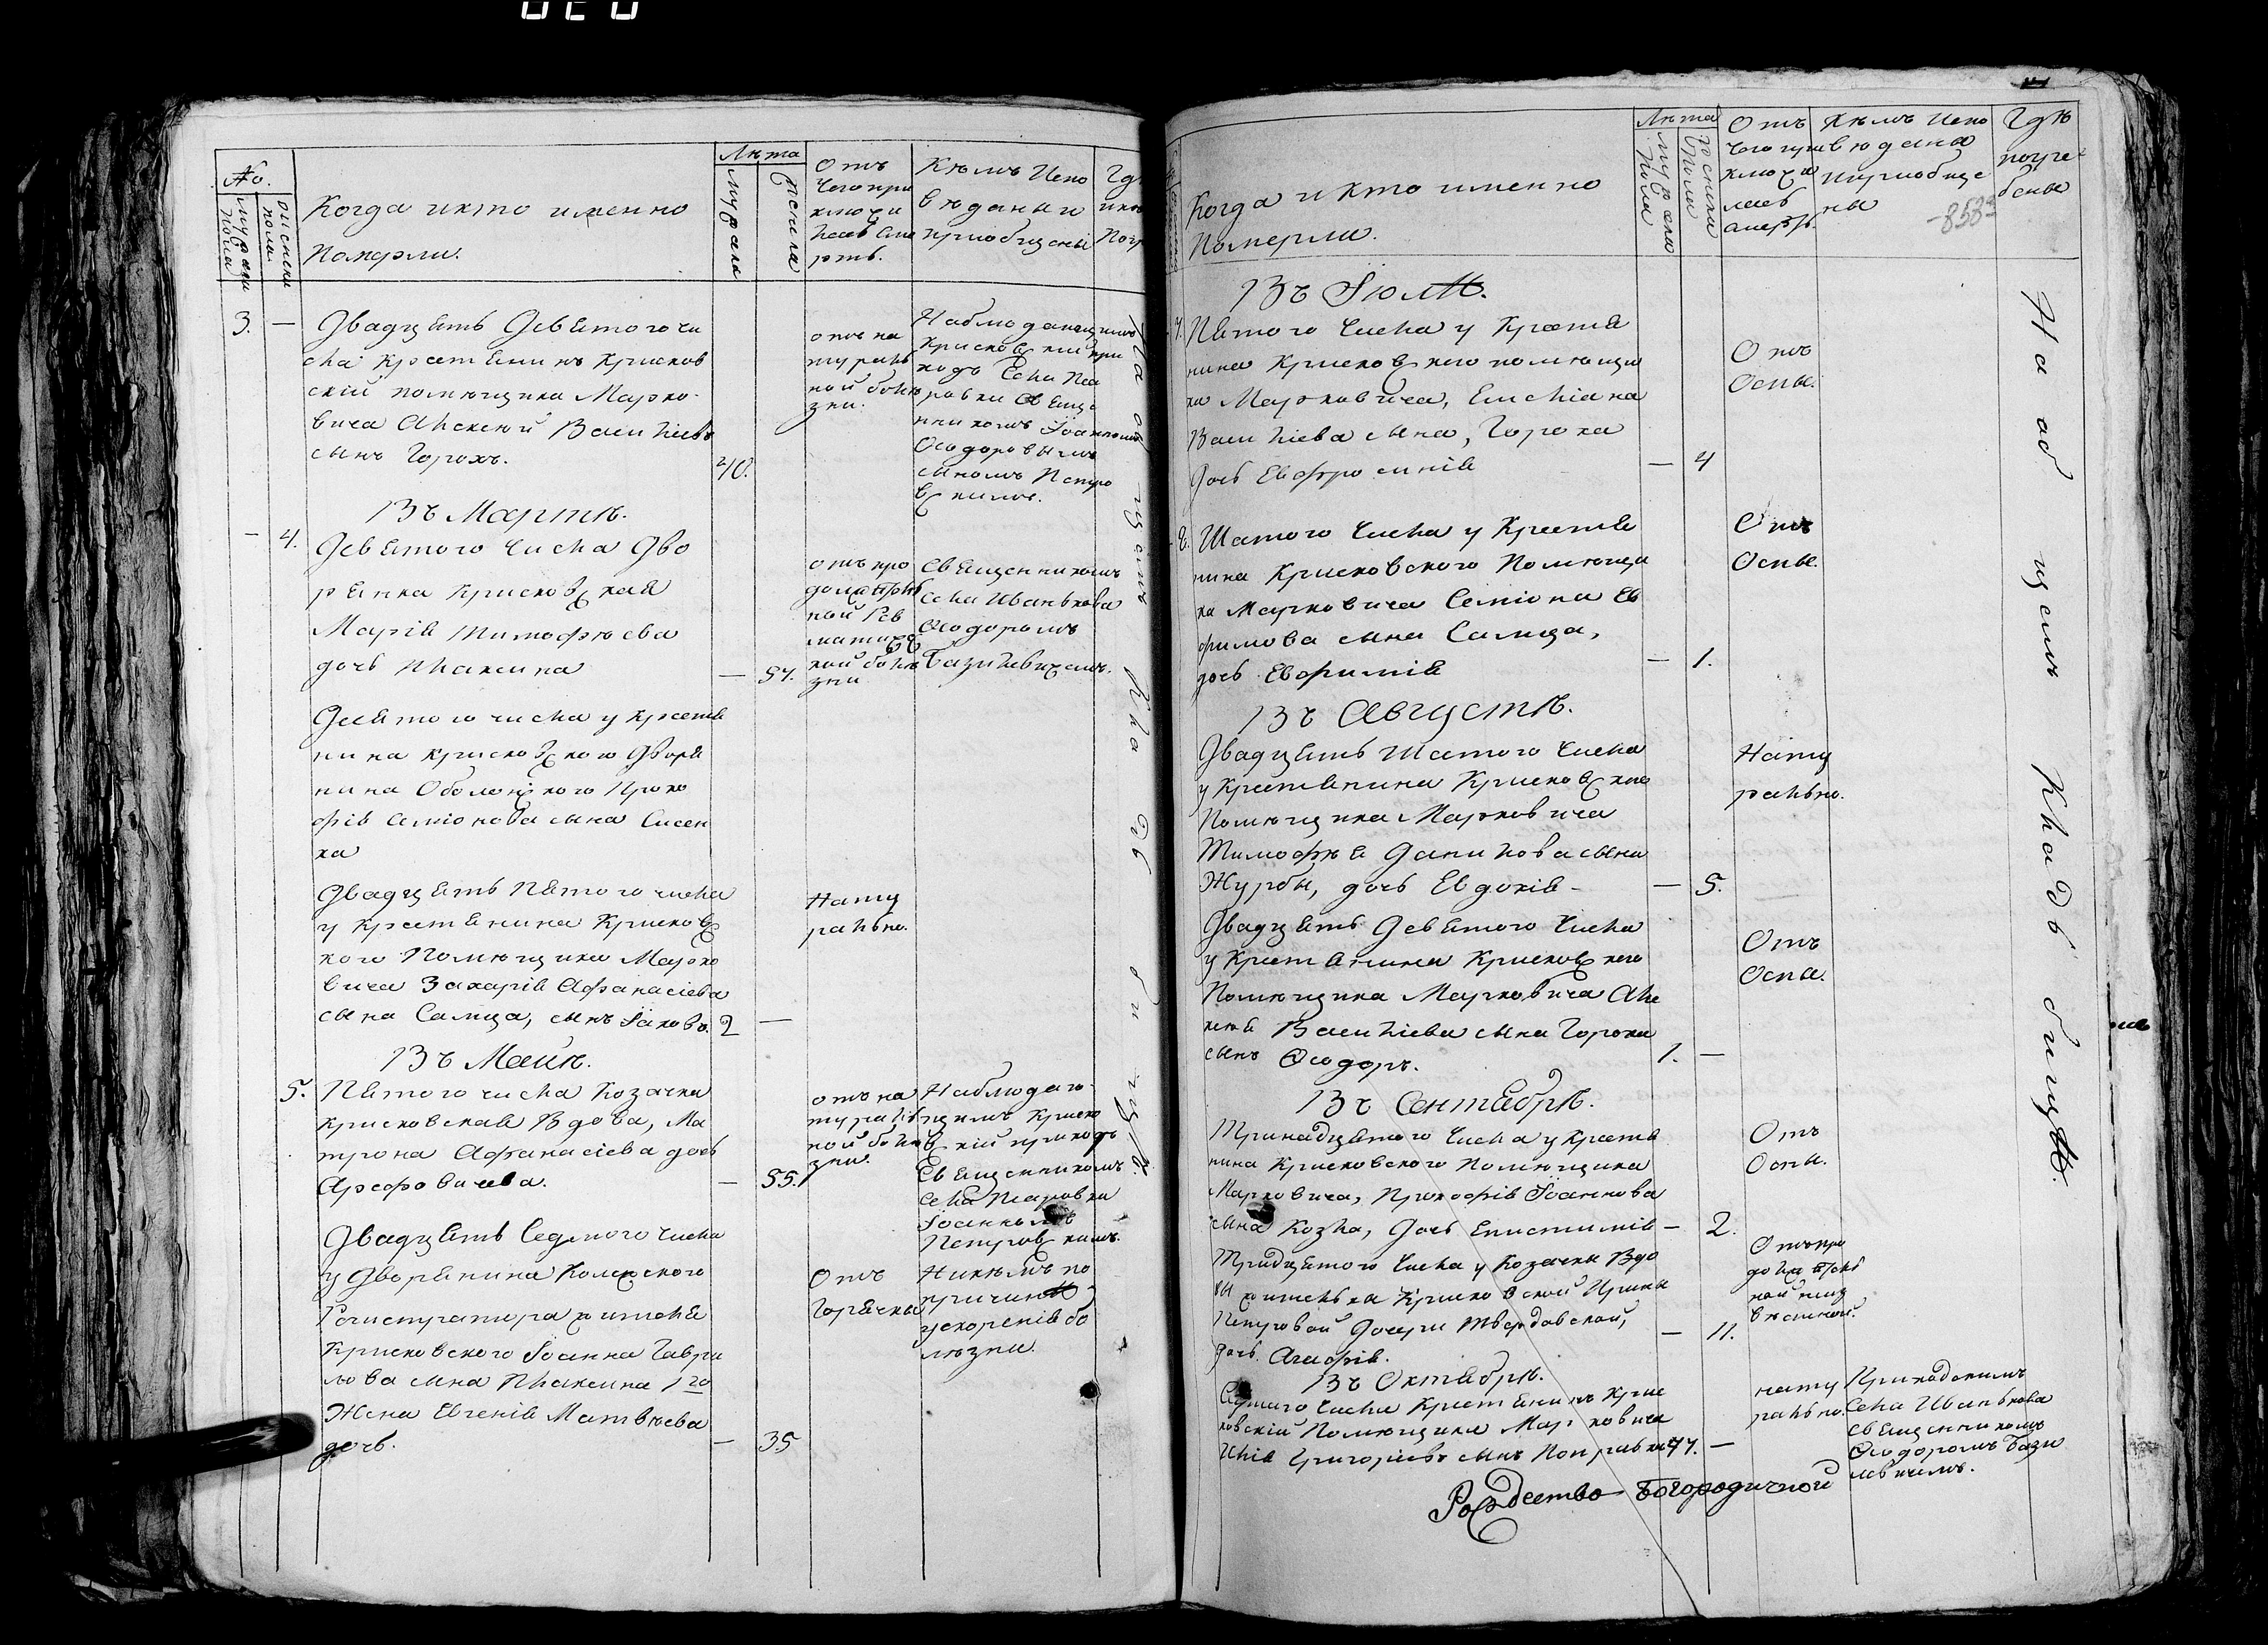 No.
мужеска пола
женска пола
Когда и кто именно
Померли.
Лѣта
мужеска
женска
Отъ
чего при
ключи
лась сме
рть.
Кѣмъ испо
вѣданы и
приобщены
3. —
Двадцять Девятого чи
сла крестянинъ Крисков
скій помѣщика Марко-
вича Алексѣй Василіевъ
сынъ Горохъ.
40.
отъ на
тураль
ной болѣ
зни.
Наблюдающимъ
Крисковскій при
ходъ села Пса
ровки Свяще
нникомъ Іоанномъ
Ѳеодоровымъ
сыномъ Петро
вскимъ.
Въ Мартѣ.
— 4.
Девятого числа Дво
рянка Крисковская
Марія Тимофѣева
дочь Плаксина
— 57.
отъ про
должитель
ной рев
матичес
кой болѣ
зни
Священникомъ
села Иванькова
Ѳеодоромъ
Базилевичемъ.
Десятого числа у крестя
нина крисковского Дворя
нина Оболонского Проко
фія Симіонова сына Сисен
ка
Двадцять Пятого числа
у крестянина Крисковс
кого Помѣщика Марко
вича Захарія Афанасіева
сына Самца, сынъ Іаковъ.
2 —
Нату
рально.
Въ Маіѣ.
5.
Пятого числа Козачка
крисковская Вдова, Ма
трона Афанасіева дочь
Арефовичева.
— 55.
отъ на
тураль
ной болѣ
зни.
Наблюдаю-
щимъ Криско
вскій приходъ
Священникомъ
села Псаровки
Іоанномъ
Петровскимъ.
Двадцять Седмого числа
у Дворянина Колежского
Регистратора жителя
Крисковского Іоанна Гаври
лова сына Плаксина 1го
Жена Евгенія Матвѣева
дочь.
— 35
Отъ
Горячки
Никѣмъ по
причинѣ
ускоренія бо
лѣзни.
Когда и кто именно
Померли.
Лѣта
мужеска пола
женска пола
Отъ
чего при
ключи
лась
смерть.
Кѣмъ испо
вѣданы
и приобще
ны
Гдѣ
погре-
бены
Въ Іюлѣ.
7.
Пятого числа у крестя
нина Крисковского помѣщи
ка Марковича, Емиліана
Василіева сына, Гороха
дочь Евфросинія
— 4
Отъ
Оспы.
8.
Шатого числа у крестя
нина Крисковского Помѣщи
ка Марковича Симіона Ев
фимова сына Самца,
дочь Евфимія
— 1.
Отъ
Оспы.
Въ Августѣ.
Двадцять Шатого числа
у крестянина Крисковского
Помѣщика Марковича
Тимофѣя Данилова сына
Журбы, дочь Евдокія -
— 5.
Нату
рально.
Двадцять Девятого числа
у крестянина Крисковского
Помѣщика Марковича Але
ксѣя Василіева сына Гороха
сынъ Ѳеодоръ.
1. —
Отъ
Оспы.
Въ Сентябрѣ.
Тринадцятого числа у крестя
нина Крисковского помѣщика
Марковича, Прокофія Іоаннова
сына Козла, дочь Епистимія
— 2.
Отъ
Оспы.
Тридцятого числа у козачки Вдо
вы жительки Крисковской Ирины
Петровой дочери Твердовской,
дочь Агафія.
— 11.
Отъ про
должитель
ной
Въ Октябрѣ.
Седмаго числа Крестянинъ Крис
ковскій Помѣщика Марковича
Илія Григоріевъ сынъ Поправка
77. —
нату
рально.
Приходскимъ
села Иванькова
священникомъ
Ѳеодоромъ Бази
левичемъ.
На общемъ кладбищѣ.
Рождество-Богородичной